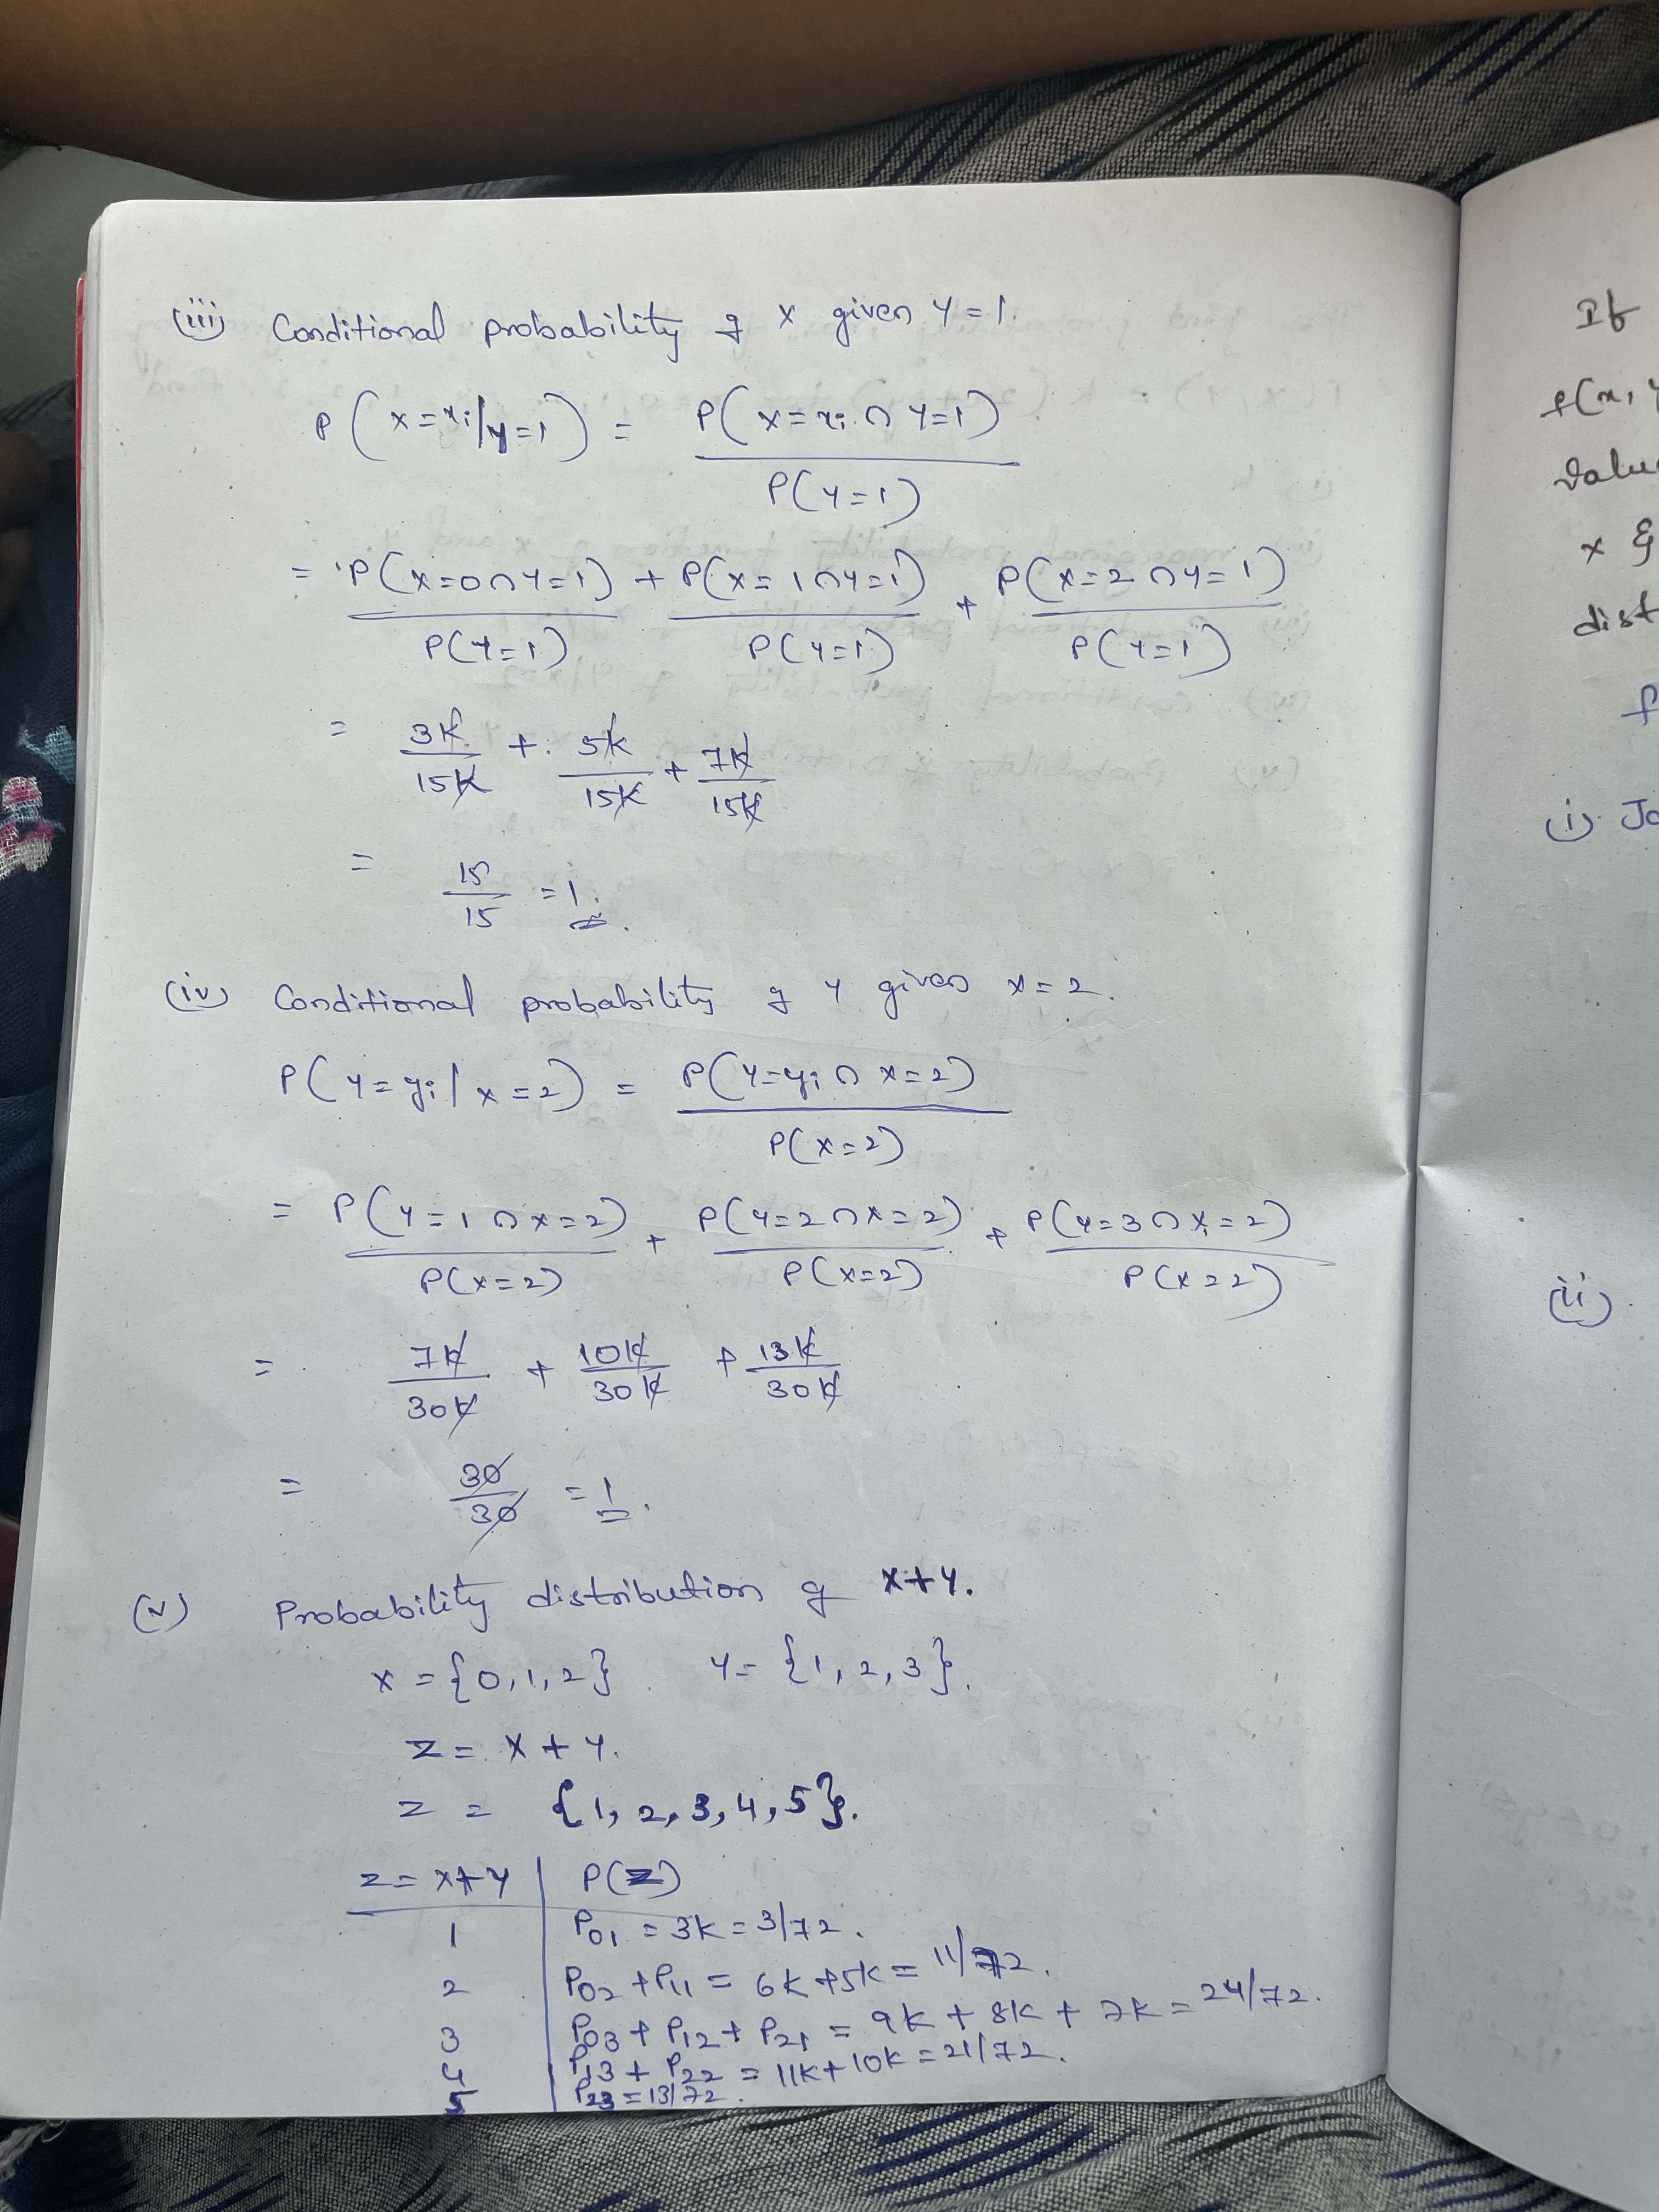 (iii) Conditional probability of x given Y=1.
P(x=xi/y=1) = P(x=xi∩Y=1) / P(Y=1)
= P(x=0∩Y=1)/P(Y=1) + P(x=1∩Y=1)/P(Y=1) + P(x=2∩Y=1)/P(Y=1)
= 3K/15K + 5K/15K + 7K/15K
= 15/15 = 1.
(iv) Conditional probability of Y given x=2.
P(Y=yi|x=2) = P(Y=yi∩x=2) / P(x=2)
= P(Y=1∩x=2)/P(x=2) + P(Y=2∩x=2)/P(x=2) + P(Y=3∩x=2)/P(x=2)
= 7K/30K + 10K/30K + 13K/30K
= 30/30 = 1.
(v) Probability distribution of x+Y.
x={0,1,2} Y={1,2,3}.
Z = x+Y.
Z = {1,2,3,4,5}.
Z=x+Y P(Z)
1 P01 = 3K = 3/72.
2 P02 + P11 = 6K+5K = 11/72.
3 P03 + P12 + P21 = 9K + 8K + 7K = 24/72.
4 P13 + P22 = 11K+10K = 21/72.
5 P23 = 13/72.
If
f(x,y
Value
x &
dist
f
(i) Jo
(ii)